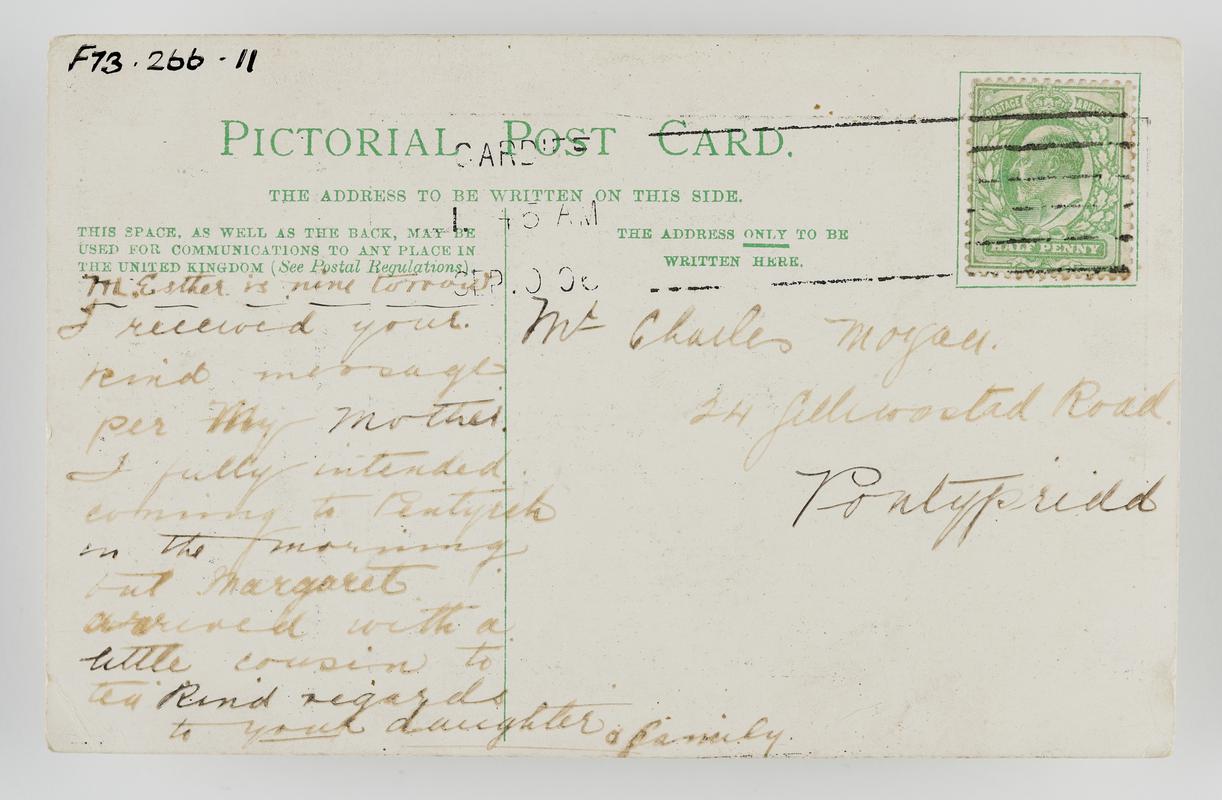 F73.266-11
PICTORIAL POST CARD.
CARDIFF
THE ADDRESS TO BE WRITTEN ON THIS SIDE.
1. 45 AM
SEP. 06
THIS SPACE, AS WELL AS THE BACK, MAY BE
USED FOR COMMUNICATIONS TO ANY PLACE IN
THE UNITED KINGDOM (See Postal Regulations).
THE ADDRESS ONLY TO BE
WRITTEN HERE.
POSTAGE
HALF PENNY
Esther is nine
I received your
kind message
per My Mother.
I fully intended
coming to Pentyrch
in the morning
but Margaret
arrived with a
little cousin to
tea Kind regards
to your daughter & family.
Mr Charles Mogan.
24 Road.
Pontypridd